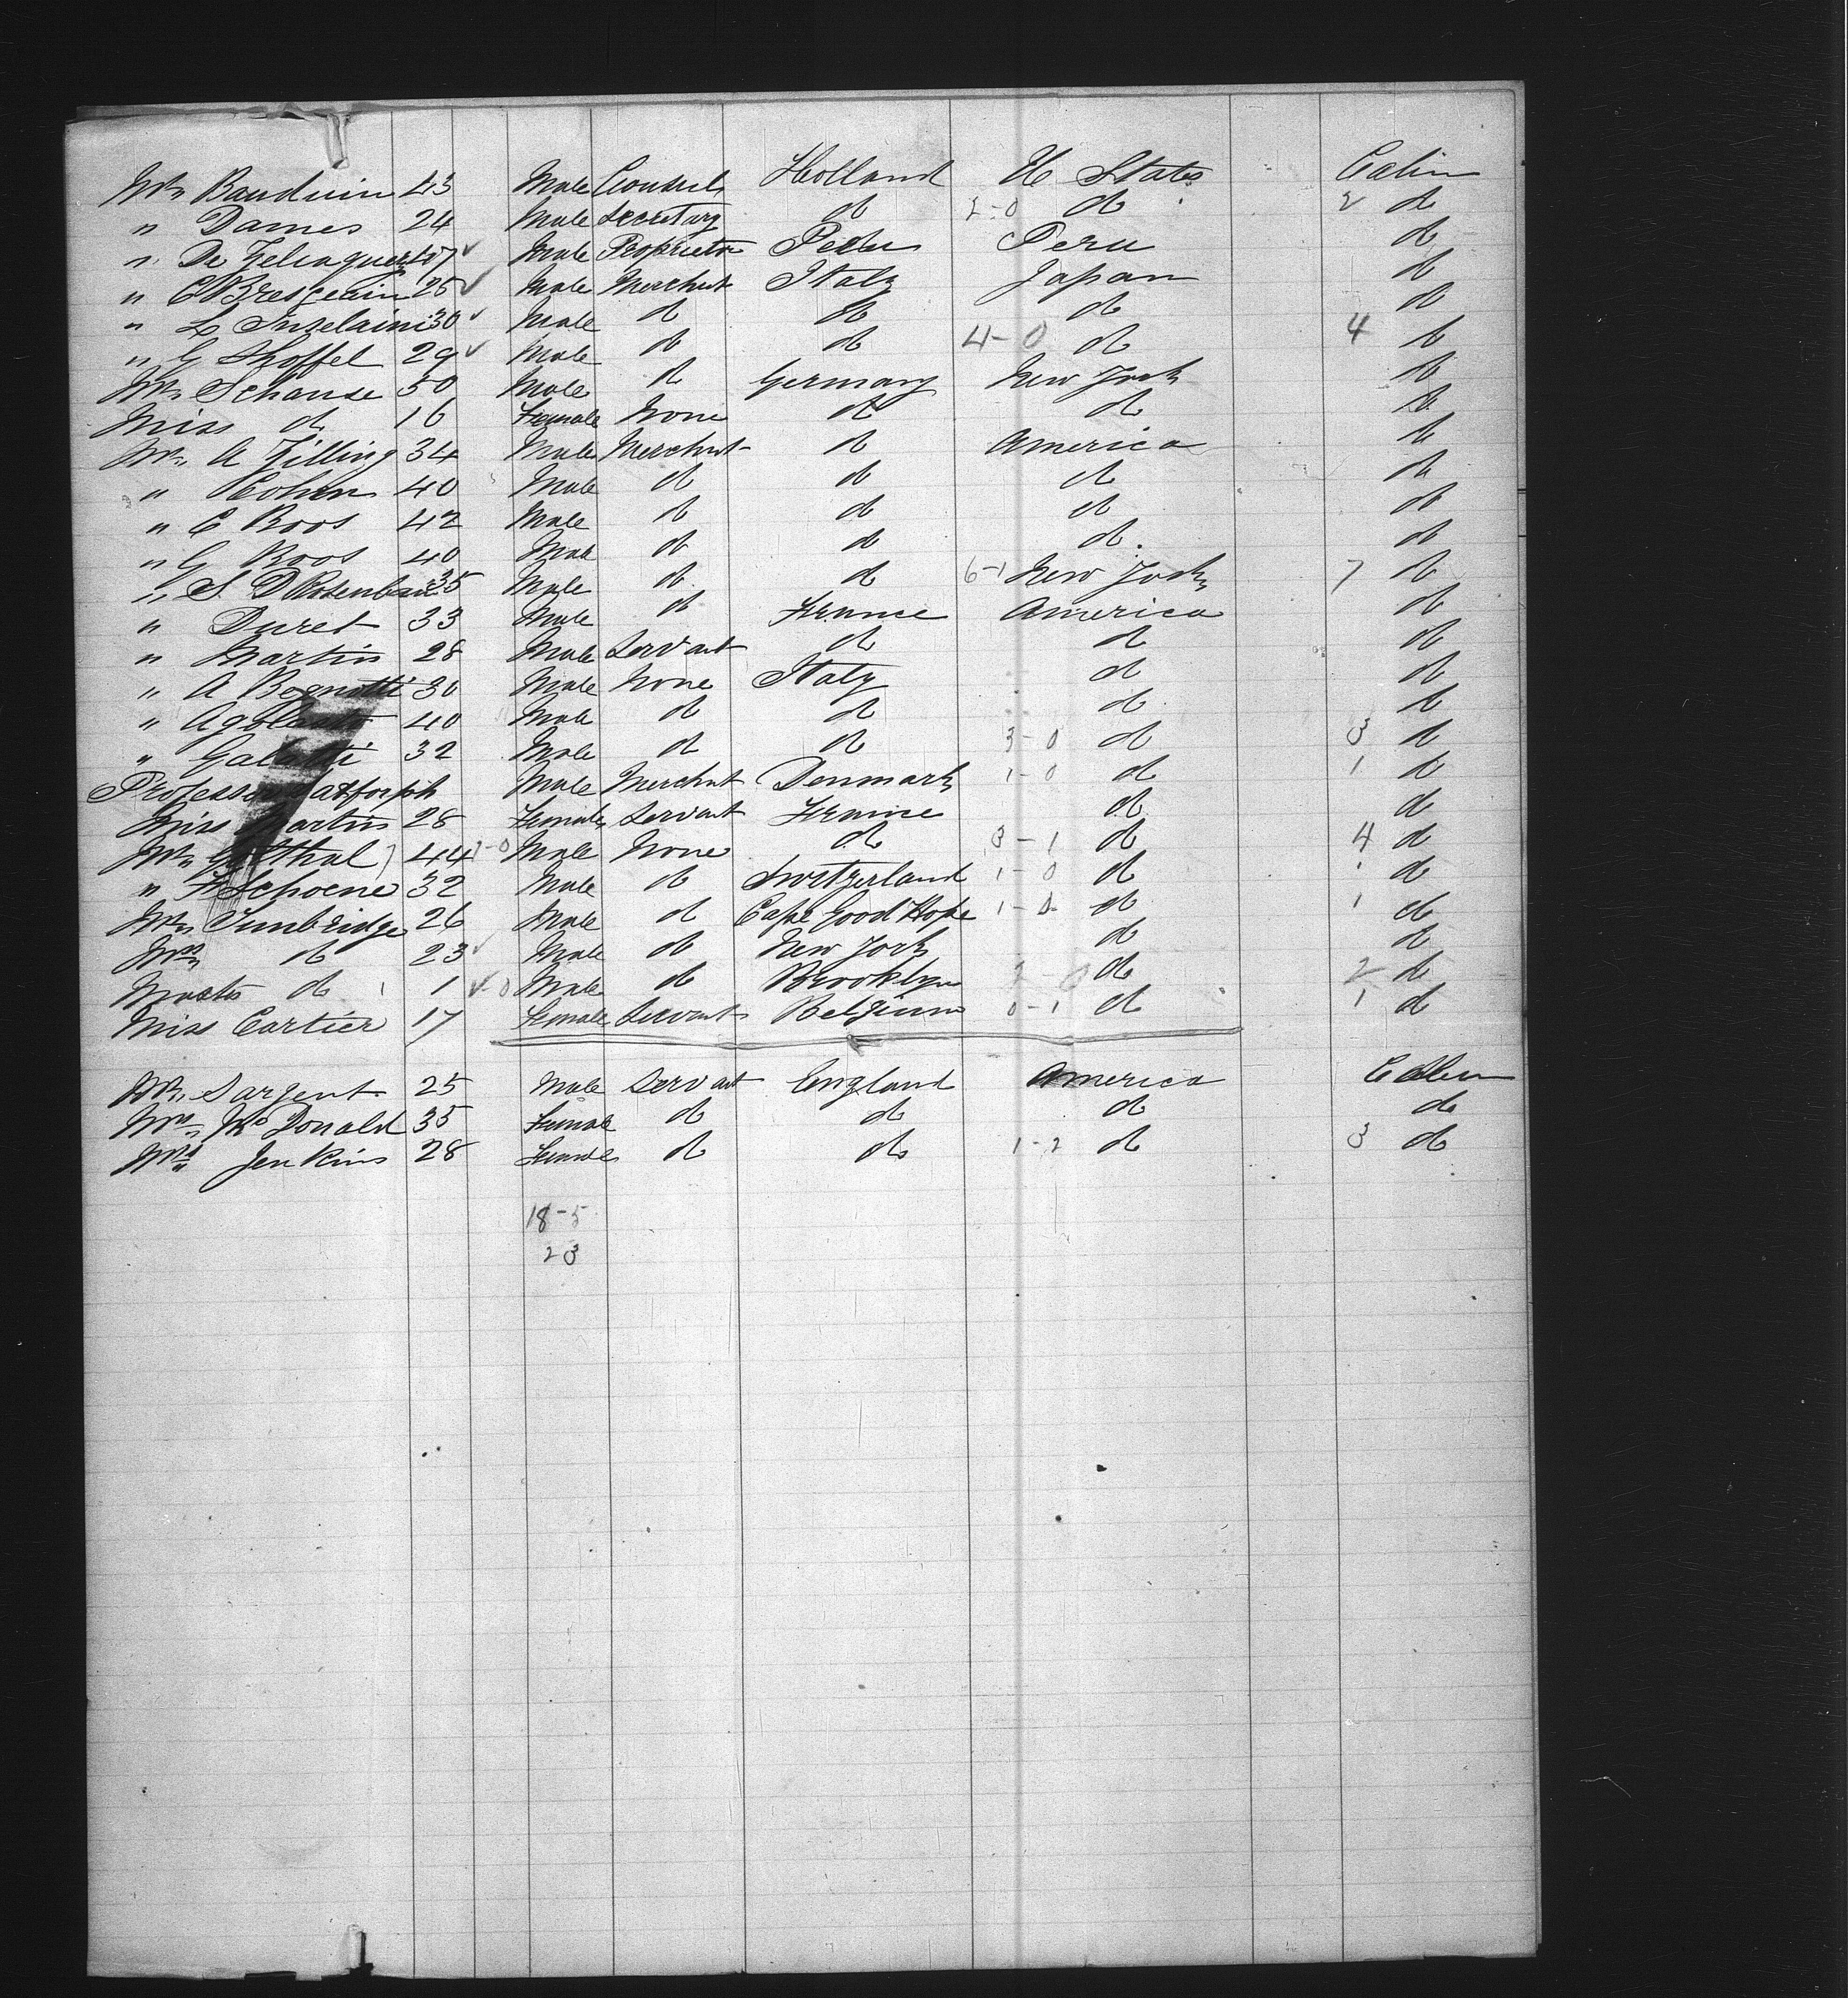 Mr Bauduin 43 Male Consul Holland U States Cabin
" Dames 24 Male Secretary do 2-0 do 2 do
" De Zelinquez 57 ✓ Male Proprietor Peru Peru do
" 25 ✓ Male Merchnt Italy Japan do
" L 30 ✓ Male do do do do
" G Shoffel 29 ✓ Male do do 4-0 do 4 do
Mr Schause 50 Male do Germany New York do
Miss do 16 Female None do do do
Mr A Zilling 34 Male Merchnt do America do
" Cohen 40 Male do do do do
" C Roos 42 Male do do do do
" G Roos 40 Male do do do do
" S. D Rosenbau 35 Male do do 6-1 New York 7 do
" Duret 33 Male do France America do
" Martin 28 Male Servant do do do
" A 30 Male None Italy do do
" 40 Male do do do do
" Galatti 32 Male do do 3-0 do 3 do
Professor Male Merchnt Denmark 1-0 do 1 do
Miss Martin 28 Female Servant France do do
Mr 44 Male None do 3-1 do 4 do
" F Schoene 32 Male do Switzerland 1-0 do do
Mr Tunbridge 26 Male do Cape Good Hope 1-0 do 1 do
Mrs do 23 ✓ Male do New York do do
Master do 1 ✓-0 Male do Brooklyn 2-0 do 2 do
Miss Cartier 17 Female Servant Belgium 0-1 do 1 do
Mr Sargent 25 Male Servant England America Cabin
Mrs McDonald 35 Female do do do do
Mrs Jenkins 28 Female do do 1-2 do 3 do
18-5
23